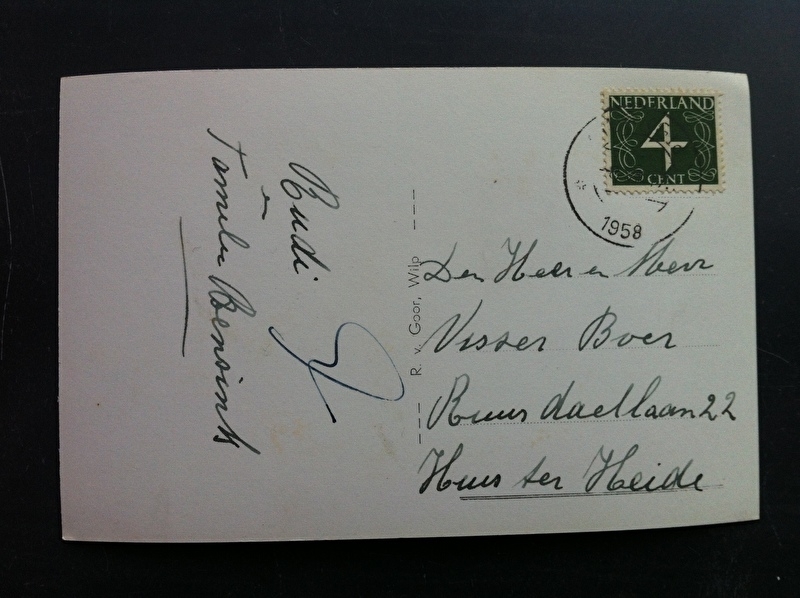 NEDERLAND
4
CENT
1958
Rudi
en
Familie Bensink
R. v. Goor, Wilp
Den Heer en Mevr
Visser Boer
Ruusdaellaan 22
Huus ter Heide